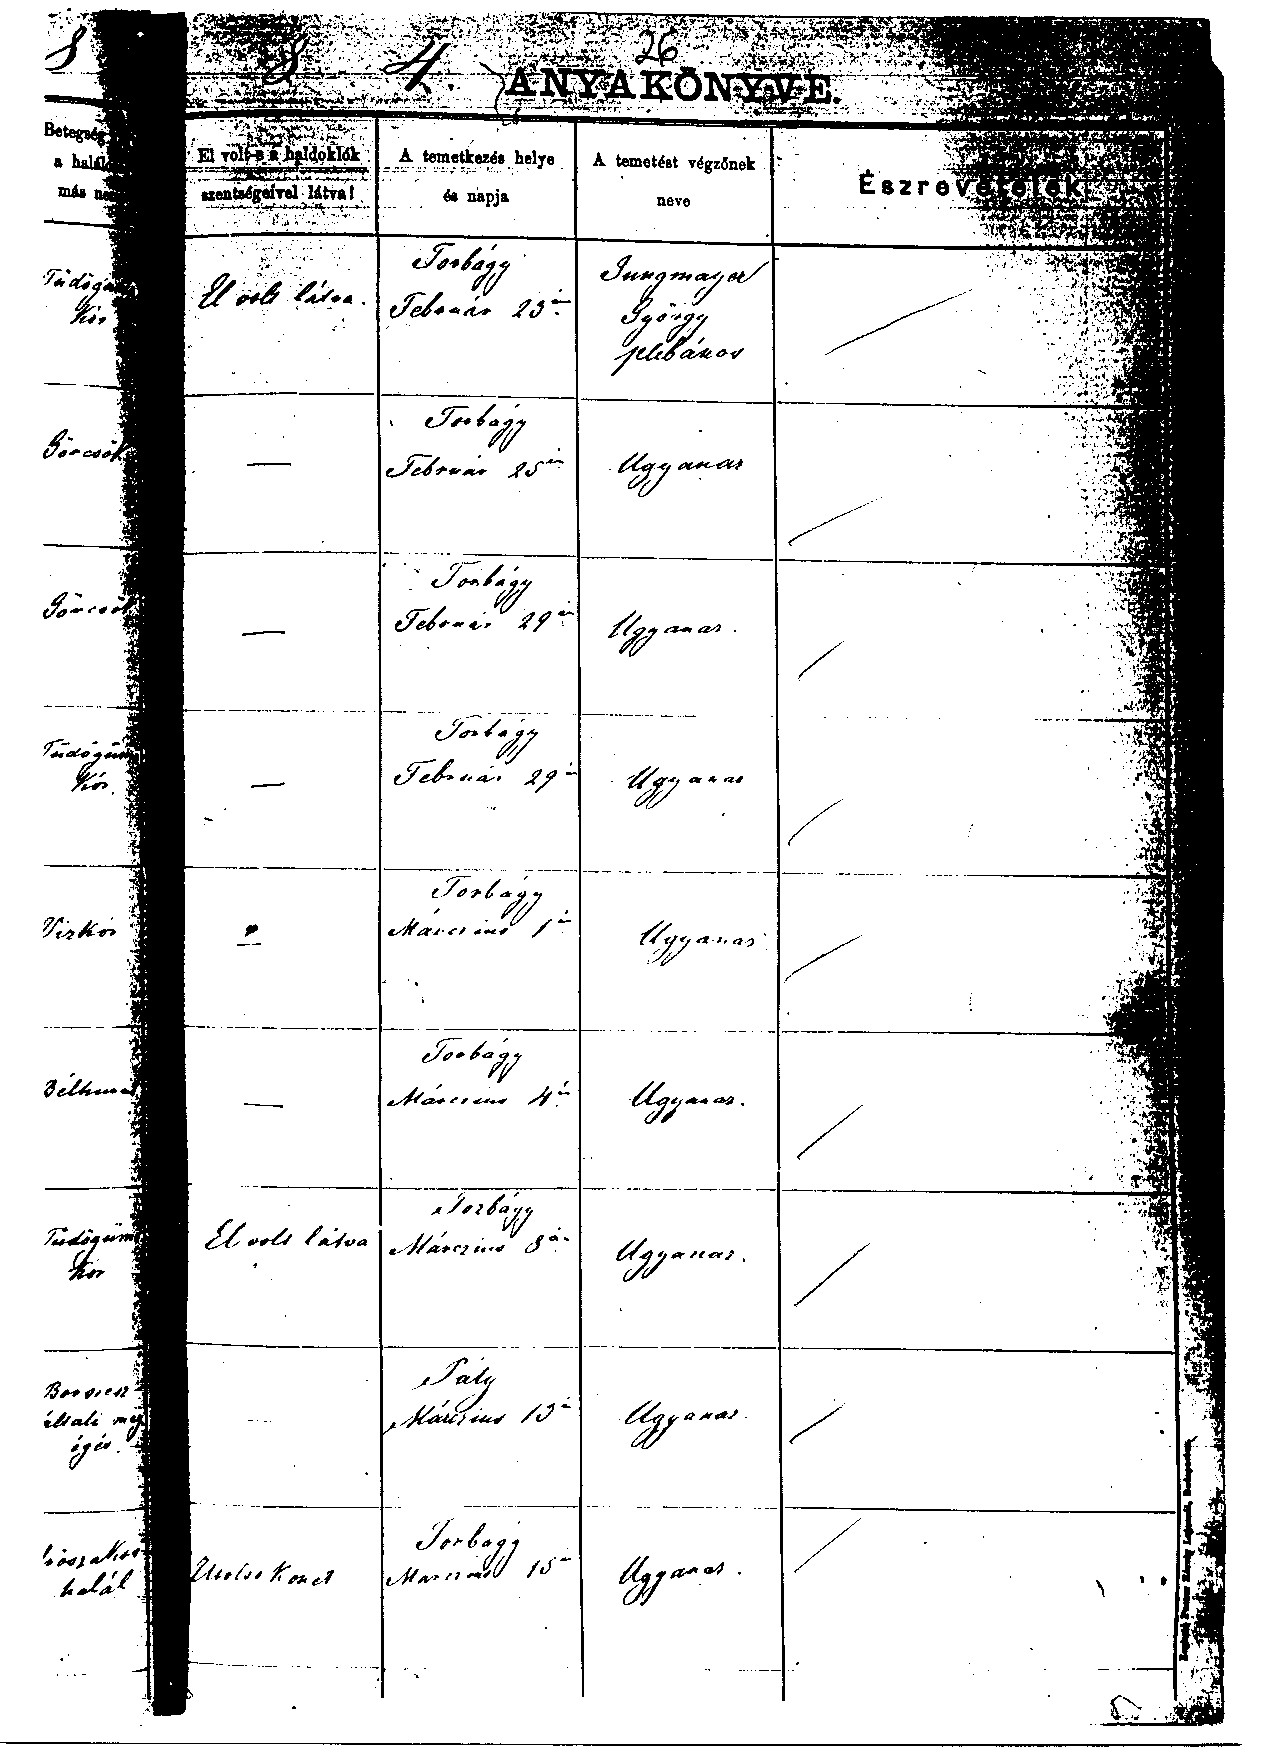 8 8 4. 26
ANYAKÖNYVE.
Betegség
a halál
más ne
El volt-e a haldoklók
szentségeivel látva?
A temetkezés helye
és napja
A temetést végzőnek
neve
Észrevételek
Tüdőgüm
Kór
El volt látva.
Torbágy
Február 23án
Jungmayer
György
plébános
Görcsök
—
Torbágy
Február 25én
Ugyanaz
Görcsök
—
Torbágy
Február 29én
Ugyanaz.
Tüdőgüm
Kór.
—
Torbágy
Február 29én
Ugyanaz
Vizkór
—
Torbágy
Márczius 1én
Ugyanaz
Bélhurut
—
Torbágy
Márczius 4én
Ugyanaz.
Tüdőgüm
Kór
El volt látva
Torbágy
Márczius 8án
Ugyanaz.
általi meg
égés.
—
Páty
Márczius 13án
Ugyanaz.
halál
Utolsó Kenet
Torbágy
Marczius 15én
Ugyanaz.